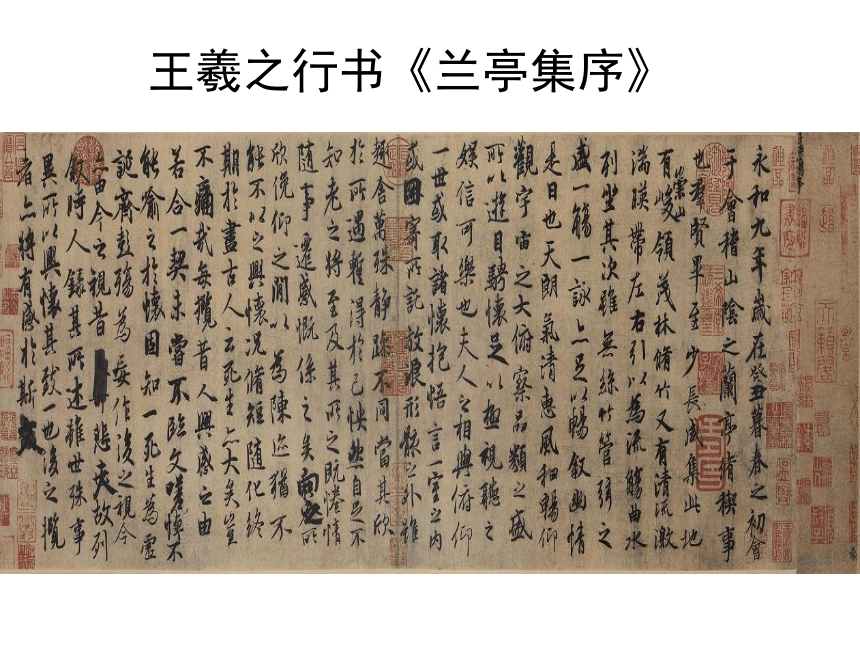 王羲之行书《兰亭集序》
永和九年歲在癸丑暮春之初會
于會稽山陰之蘭亭脩禊事
也群賢畢至少長咸集此地
有崇山峻領茂林脩竹又有清流激
湍暎帶左右引以為流觴曲水
列坐其次雖無絲竹管弦之
盛一觴一詠亦足以暢敘幽情
是日也天朗氣清惠風和暢仰
觀宇宙之大俯察品類之盛
所以遊目騁懷足以極視聽之
娛信可樂也夫人之相與俯仰
一世或取諸懷抱悟言一室之內
或因寄所託放浪形骸之外雖
趣舍萬殊靜躁不同當其欣
於所遇暫得於己怏然自足不
知老之將至及其所之既惓情
隨事遷感慨係之矣向之所
欣俛仰之閒以為陳迹猶不
能不以之興懷況脩短隨化終
期於盡古人云死生亦大矣豈
不痛哉每攬昔人興感之由
若合一契未嘗不臨文嗟悼不
能喻之於懷固知一死生為虛
誕齊彭殤為妄作後之視今
亦由今之視昔悲夫故列
敘時人錄其所述雖世殊事
異所以興懷其致一也後之攬
者亦將有感於斯文